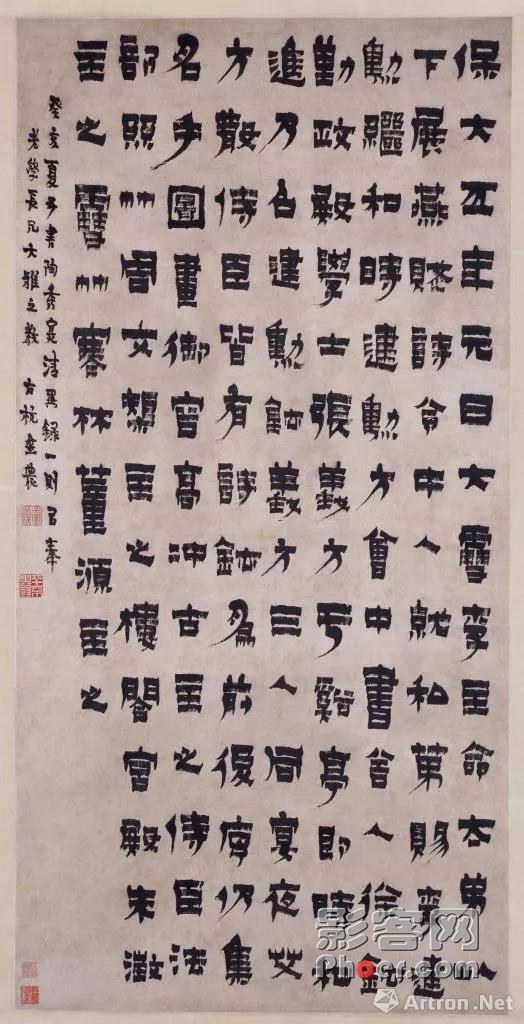 保大五年元日大雪李主命太弟以
下展燕賦詩令中人就和第賜李建
勳繼和時建勳方會中書舍人徐鉉
勤政殿學士張義方亏谿亭即時和
進乃召建勳鉉義方三人同宴夜艾
方散侍臣皆有詩鉉為前後序仍集
名手圖畫御容高冲古主之侍臣法
部絲竹周文矩主之樓閣宮殿朱澂
主之雪竹寒林董源主之
癸亥夏五書陶秀實清異録一則㠯奉
老學長兄大雅之教 古杭金農
影客网
Phoer.com
Artron.Net